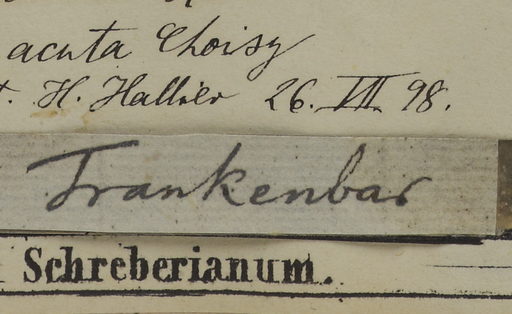 acuta Choisy
t. H. Hallier 26. VII. 98.
Trankenbar
Schreberianum.